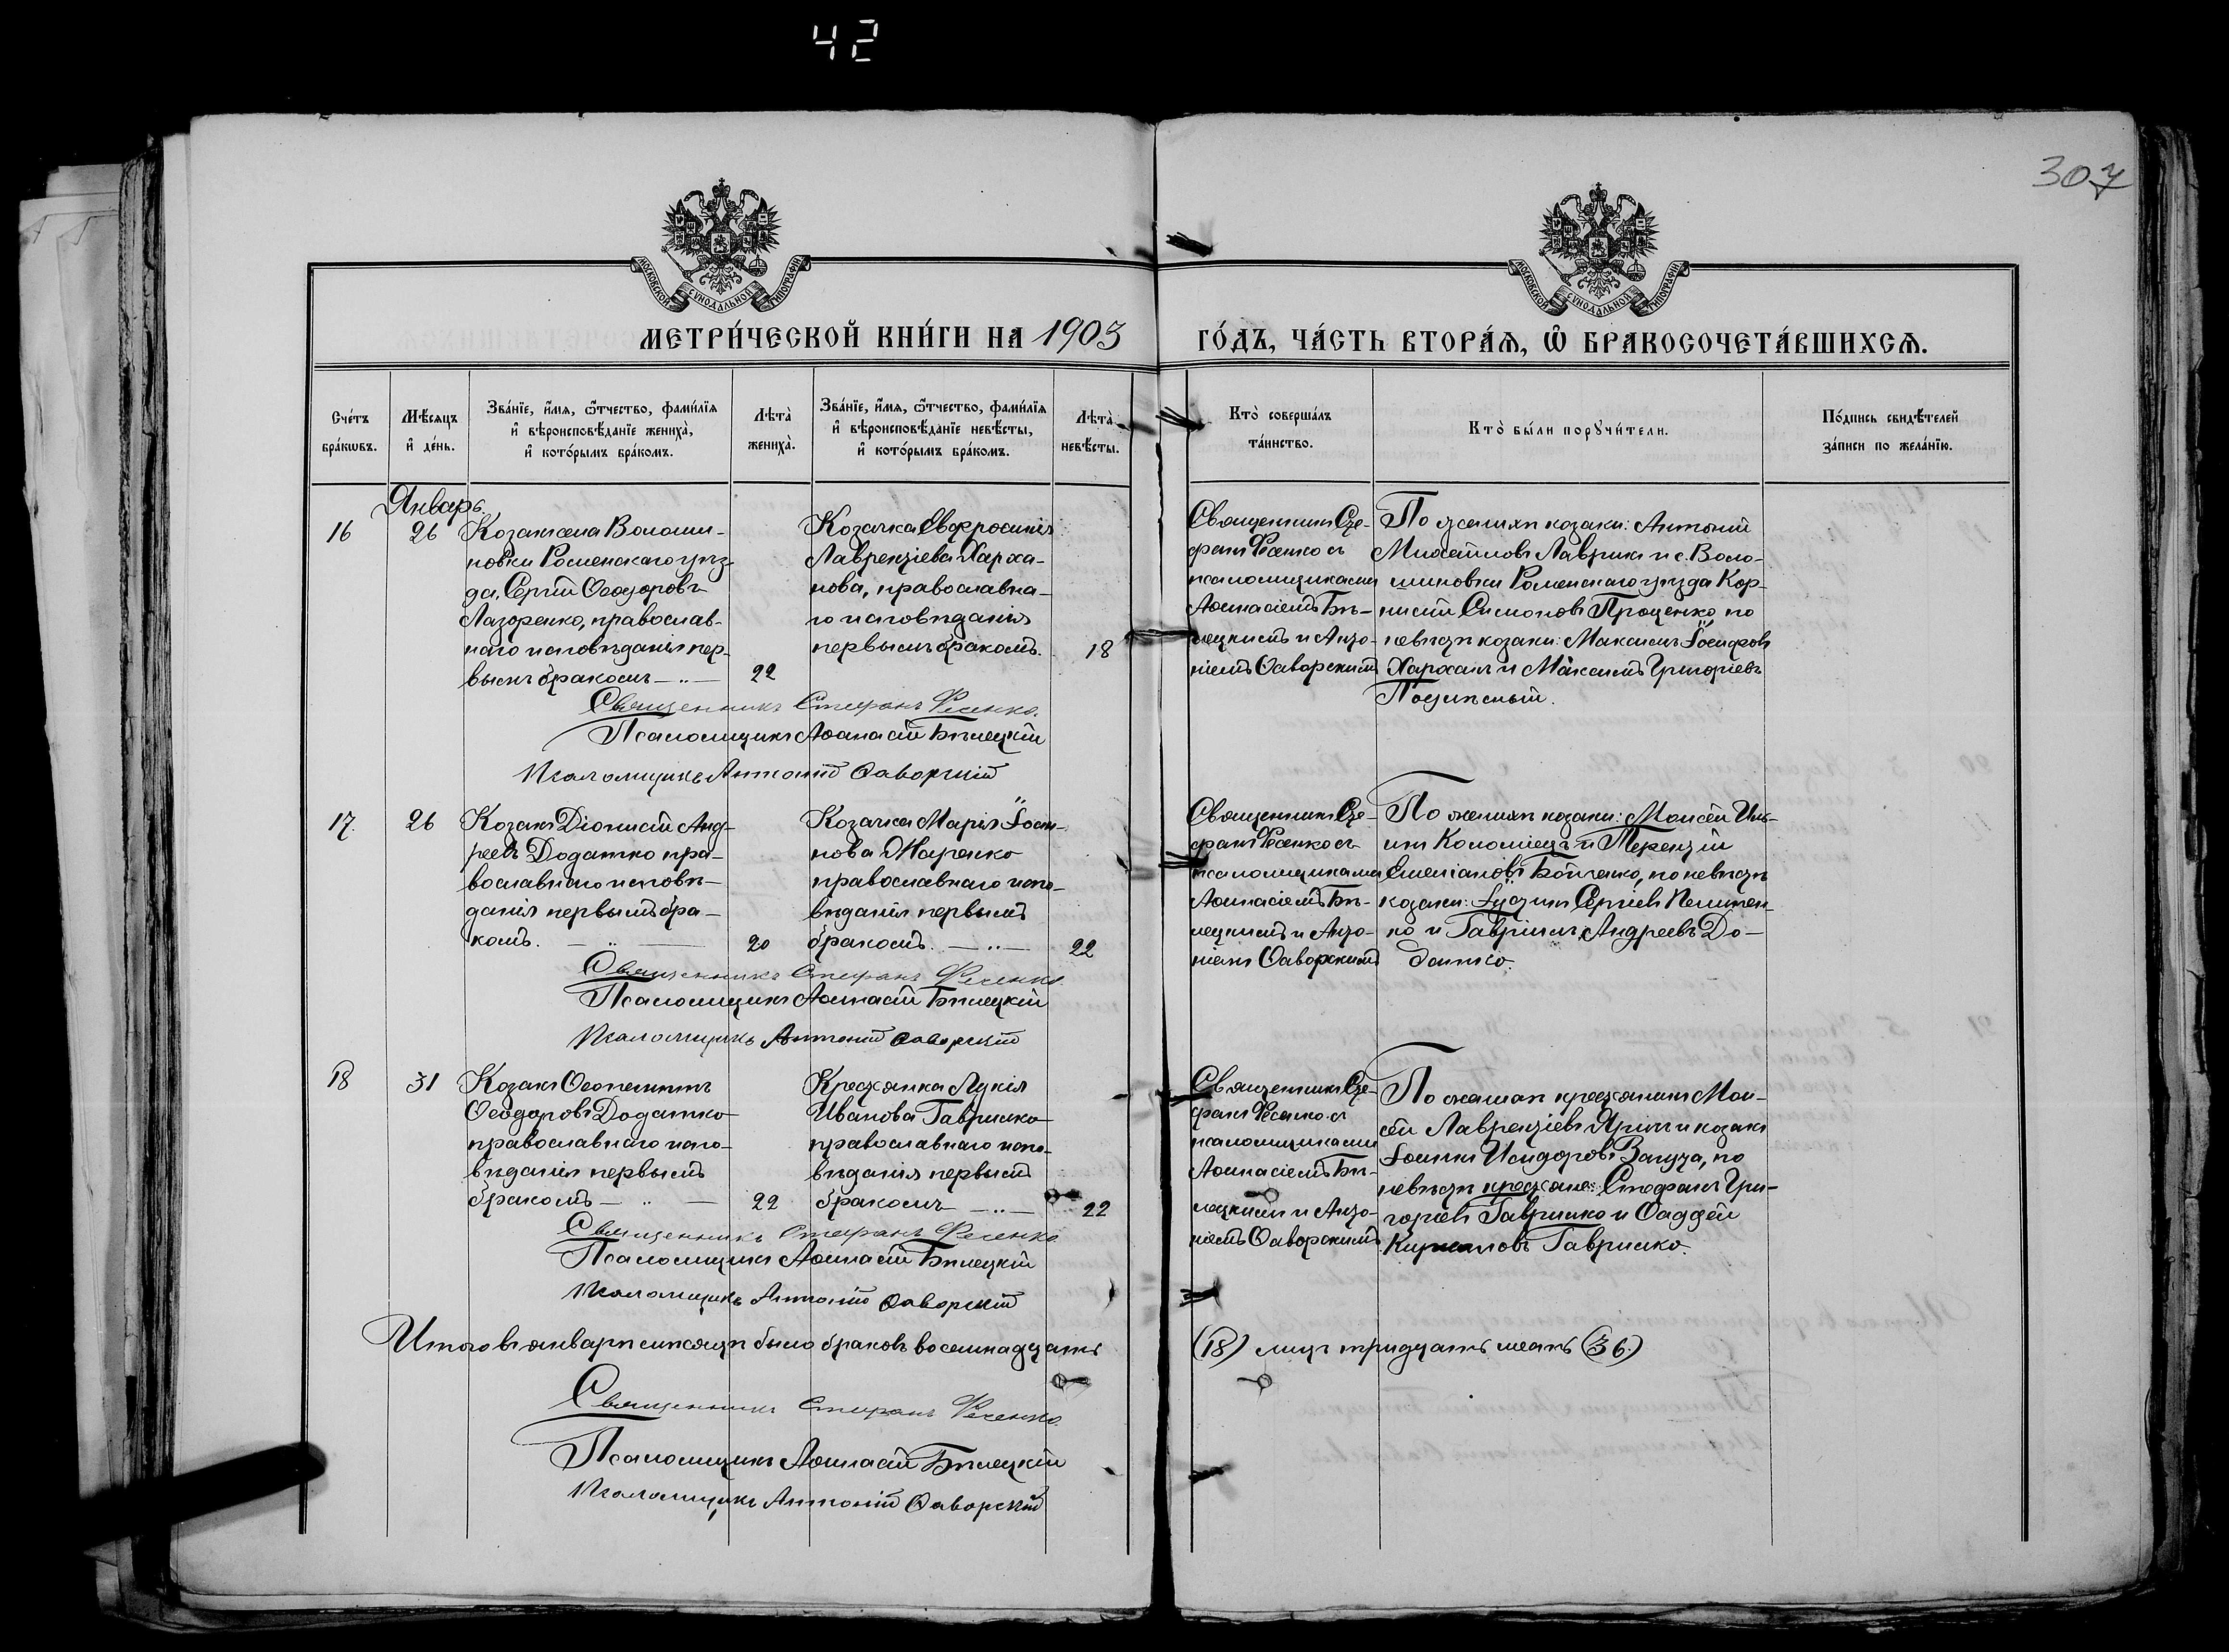 42
307
МОСКОВСКОЙ СѴНОДАЛЬНОЙ ТИПОГРАФІИ
МОСКОВСКОЙ СѴНОДАЛЬНОЙ ТИПОГРАФІИ
МЕТРИ́ЧЕСКОЙ КНИ́ГИ НА 1903 ГО́ДЪ, ЧА́СТЬ ВТОРА́Ѧ, Ѡ БРАКОСОЧЕТА́ВШИХСѦ.
Сче́тъ бра́кѡвъ.
Мѣ́сѧцъ и҆ де́нь.
Зва́нїе, и҆́мѧ, ѻ҆́тчество, фами́лїѧ
и҆ вѣроисповѣ́данїе жениха̀,
и҆ кото́рымъ бра́комъ.
Лѣта̀ жениха̀.
Зва́нїе, и҆́мѧ, ѻ҆́тчество, фами́лїѧ
и҆ вѣроисповѣ́данїе невѣ́сты,
и҆ кото́рымъ бра́комъ.
Лѣта̀ невѣ́сты.
Кто̀ соверша́лъ
та́инство.
Кто̀ бы́ли порꙋчи́тели.
По́дпись свидѣ́телей
за́писи по жела́нїю.
Январь.
16
26
Козакъ села Волоши-
новки Роменскаго уѣз-
да, Сергій Ѳеодоровъ
Лазоренко, православ-
наго исповѣданія пер-
вымъ бракомъ
22
Козачка Евфросинія
Лаврентіева Харха-
нова, православна-
го исповѣданія
первымъ бракомъ.
18
Священникъ Сте-
фанъ Фесенко съ
псаломщиками
Аѳанасіемъ Бѣ-
лецкимъ и Анто-
ніемъ Ѳаворскимъ
По женихѣ козаки: Антоній
Михаиловъ Лаврикъ и с. Воло-
шиновки Роменскаго уѣзда Кор-
нилій Симоновъ Проценко, по
невѣстѣ козаки: Максимъ Іосифовъ
Харханъ и Максимъ Григоріевъ
Священникъ Стефанъ Фесенко.
Псаломщикъ Аѳанасій Бѣлецкій
Псаломщикъ Антоній Ѳаворскій
17.
26
Козакъ Діонисій Анд-
реевъ Додатко пра-
вославнаго исповѣ-
данія первымъ бра-
комъ.
20
Козачка Марія Іоан-
нова Маренко
православнаго испо-
вѣданія первымъ
бракомъ.
22
Священникъ Сте-
фанъ Фесенко съ
псаломщиками
Аѳанасіемъ Бѣ-
лецкимъ и Анто-
ніемъ Ѳаворскимъ
По женихѣ козаки: Моисей Иль-
инъ Коломіецъ и Терентій
Емеліановъ Бойченко, по невѣстѣ
козаки: Іустинъ Сергіевъ Пелипен-
ко и Гавріилъ Андреевъ До-
датко.
Священникъ Стефанъ Фесенко
Псаломщикъ Аѳанасій Бѣлецкій
Псаломщикъ Антоній Ѳаворскій
18
31
Козакъ Ѳеопемптъ
Ѳеодоровъ Додатко
православнаго испо-
вѣданія первымъ
бракомъ
22
Крестьянка Лукія
Иванова Гавришко
православнаго испо-
вѣданія первымъ
бракомъ
22
Священникъ Сте-
фанъ Фесенко съ
псаломщиками
Аѳанасіемъ Бѣ-
лецкимъ и Анто-
ніемъ Ѳаворскимъ
По женихѣ крестьянинъ Мои-
сей Лаврентіевъ Яришъ и козакъ
Іоаннъ Исидоровъ Вагуза, по
невѣстѣ крестьяне: Стефанъ Гри-
горіевъ Гавришко и Ѳаддей
Кирилловъ Гавришко.
Священникъ Стефанъ Фесенко
Псаломщикъ Аѳанасій Бѣлецкій
Псаломщикъ Антоній Ѳаворскій
Итого въ январѣ мѣсяцѣ было браковъ восемнадцать (18) лицъ тридцать шесть (36.)
Священникъ Стефанъ Фесенко.
Псаломщикъ Аѳанасій Бѣлецкій
Псаломщикъ Антоній Ѳаворскій